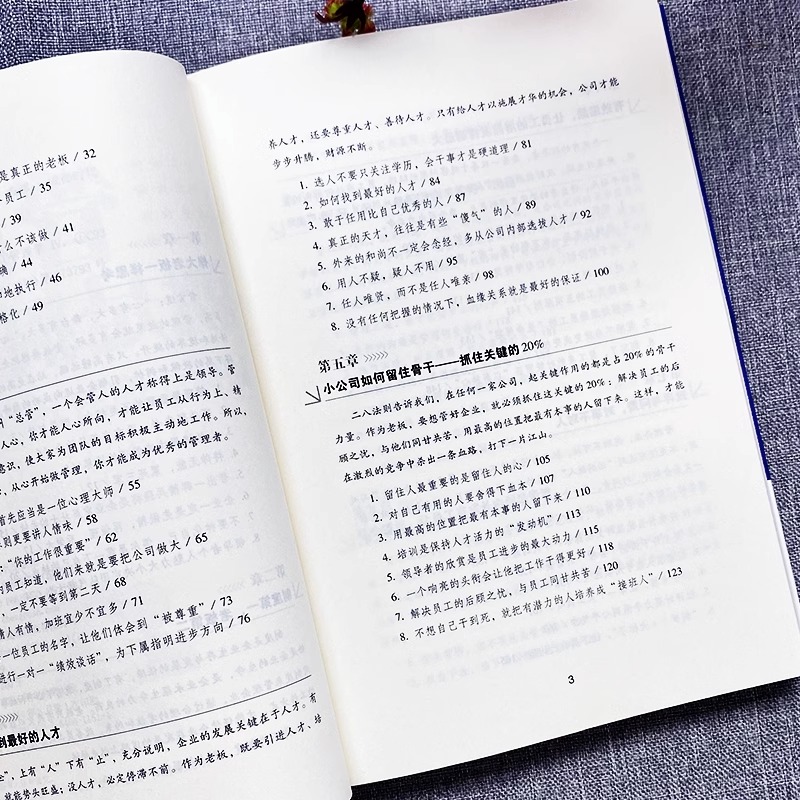 是真正的老板 / 32
员工 / 35
/ 39
么不该做 / 41
确 / 44
地执行 / 46
格化 / 49
“总管”，一个会管人的人才称得上是领导。管
人心，你才能人心所向，才能让员工从行为上、精
意识，使大家为团队的目标积极主动地工作。所以，
，从心开始做管理，你才能成为优秀的管理者。
首先应当是一位心理大师 / 55
则更要讲人情味 / 58
：“你的工作很重要” / 62
的员工知道，他们来就是要把公司做大 / 65
，一定不要等到第二天 / 68
情人有情，加班宜少不宜多 / 71
一位员工的名字，让他们体会到“被尊重” / 73
进行一对一“绩效谈话”，为下属指明进步方向 / 76
到最好的人才
，上有“人”下有“止”，充分说明，企业的发展关键在于人才。有
就能势头旺盛；没人才，必定停滞不前。作为老板，既要引进人才、培
养人才，还要尊重人才、善待人才。只有给人才以施展才华的机会，公司才能
步步升腾，财源不断。
1. 选人不要只关注学历，会干事才是硬道理 / 81
2. 如何找到最好的人才 / 84
3. 敢于任用比自己优秀的人 / 87
4. 真正的天才，往往是有些“傻气”的人 / 89
5. 外来的和尚不一定会念经，多从公司内部选拔人才 / 92
6. 用人不疑，疑人不用 / 95
7. 任人唯贤，而不是任人唯亲 / 98
8. 没有任何把握的情况下，血缘关系就是最好的保证 / 100
第五章
小公司如何留住骨干——抓住关键的20%
二八法则告诉我们，在任何一家公司，起关键作用的都是占20%的骨干
力量。作为老板，要想管好企业，就必须抓住这关键的20%：解决员工的后
顾之忧，与他们同甘共苦，用最高的位置把最有本事的人留下来。这样，才能
在激烈的竞争中杀出一条血路，打下一片江山。
1. 留住人最重要的是留住人的心 / 105
2. 对自己有用的人要舍得下血本 / 107
3. 用最高的位置把最有本事的人留下来 / 110
4. 培训是保持人才活力的“发动机” / 113
5. 领导者的欣赏是员工进步的最大动力 / 115
6. 一个响亮的头衔会让他把工作干得更好 / 118
7. 解决员工的后顾之忧，与员工同甘共苦 / 120
8. 不想自己干到死，就把有潜力的人培养成“接班人” / 123
3